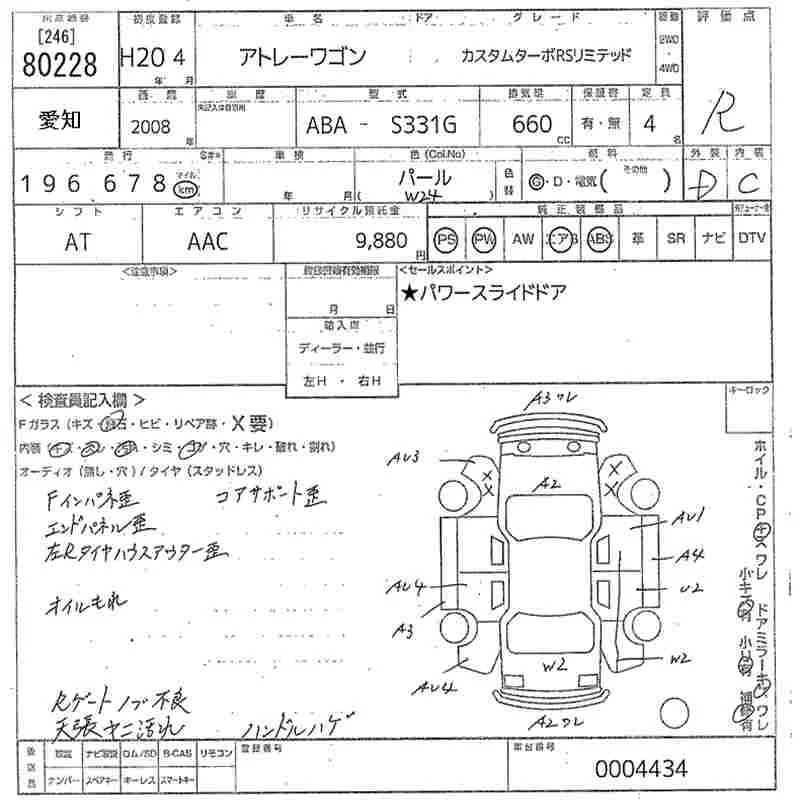 [246]
80228
初度登録
H20 4
年 月
車名 ドア グレード
アトレーワゴン カスタムターボRSリミテッド
駆動
2WD
4WD
評価点
R
愛知
2008
年
車歴
型式
ABA - S331G
排気量
660
CC
保証書
有・無
定員
4
名
走行
196678
マイル
km
車検
年 月
色(Col.No)
パール
( W24 )
色替
燃料
G・D・電気( その他 )
外装
D
内装
C
シフト
AT
エアコン
AAC
リサイクル預託金
9,880
円
純正装備品
PS PW AW エアB ABS 革 SR ナビ DTV
<注意事項>
月 日
輸入車
ディーラー・並行
左H・右H
<セールスポイント>
★パワースライドドア
キーロック
<検査員記入欄>
Fガラス(キズ・飛石・ヒビ・リペア跡・X要)
オーディオ(無し・穴)/タイヤ(スタッドレス)
Fインパネ歪 コアサポート歪
エンドパネル歪
左Rタイヤハウスアウター歪
オイルもれ
Rゲートノブ不良
天張ヤニ汚れ ハンドルハゲ
A3ワレ
AU3
X X
X X
A2
AU1
A4
U2
AU4
A3
AU4
W2
W2
A2ワレ
後送品
ナビ ROM/SD B-CAS リモコン
ナンバー スペアキー キーレス スマートキー
登録番号
車台番号
0004434